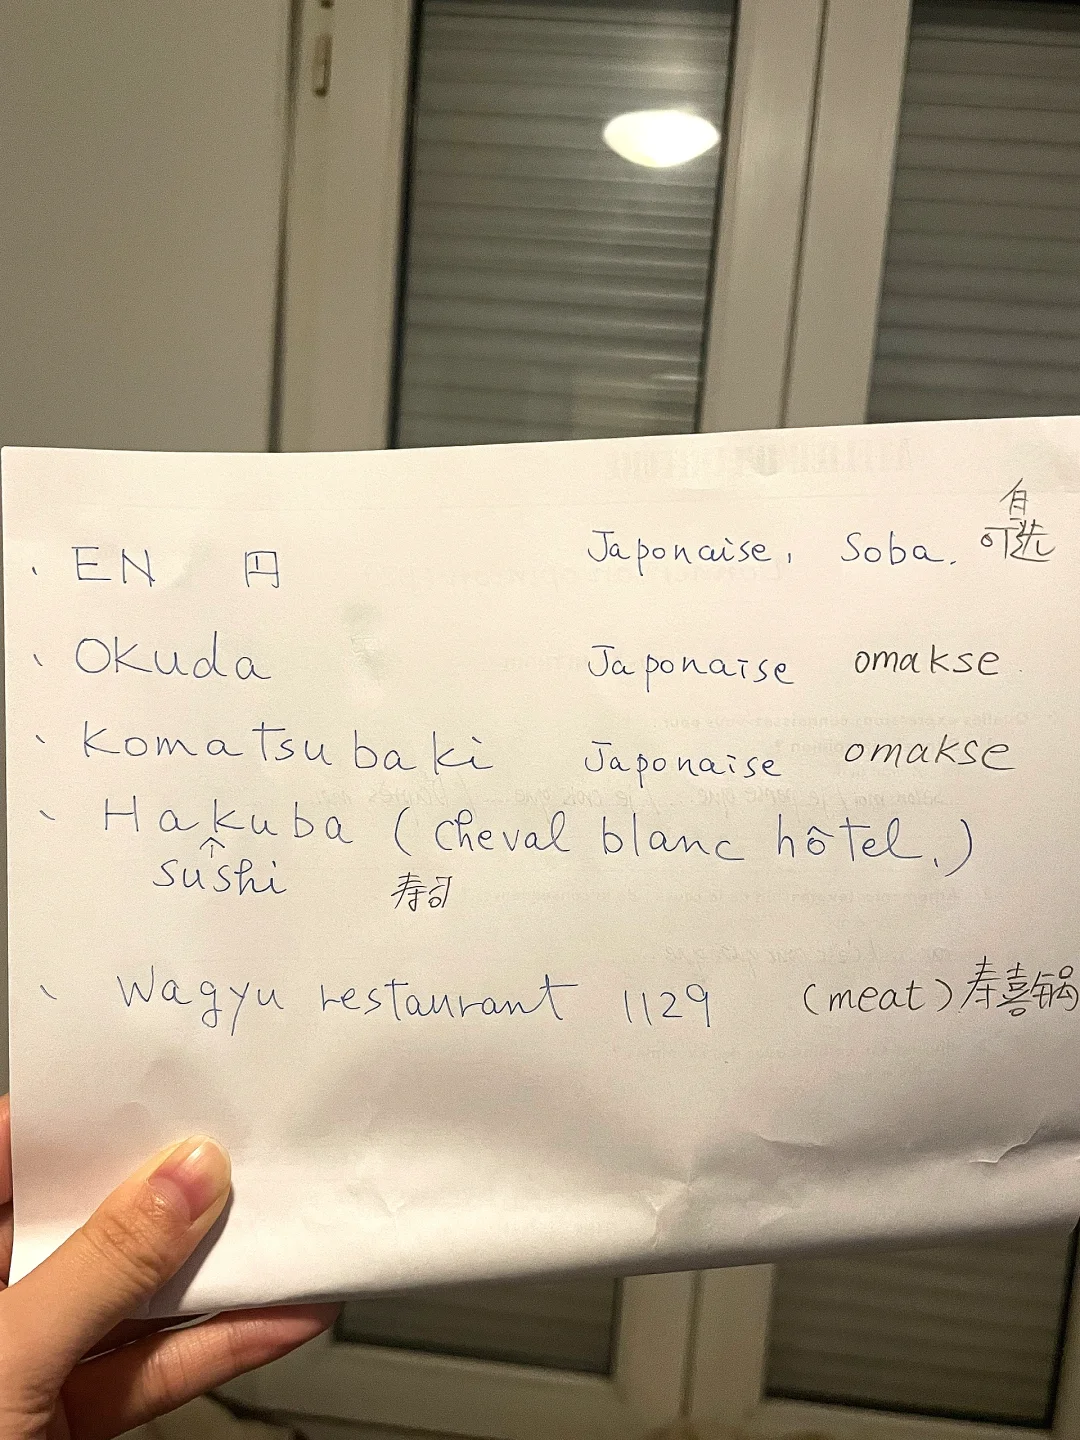 自
EN 円 Japonaise, Soba. 可选
Okuda Japonaise omakse
Komatsubaki Japonaise omakse
Hakuba (cheval blanc hôtel.)
↑
sushi 寿司
Wagyu restaurant 1129 (meat) 寿喜锅